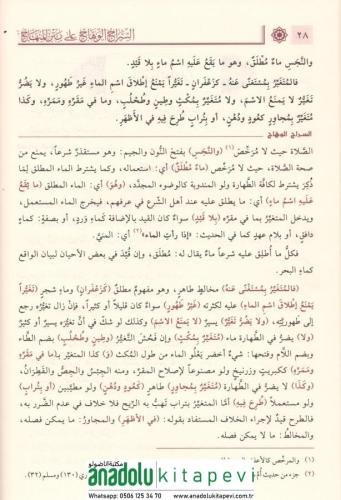 ٢٨
السراج الوهاج على متن المنهاج
والنَّجَسِ ماءٌ مُطْلَقٌ، وهو ما يَقَعُ عَلَيهِ اسْمُ ماءٍ بِلا قَيْدٍ.
فالمُتَغَيِّرُ بِمُسْتَغْنًى عَنهُ ـ كزَعْفَرانٍ ـ تَغَيُّراً يَمْنَعُ إطْلاقَ اسْمِ الماءِ غَيرُ طَهُورٍ، ولا يَضُرُّ
تَغَيُّرٌ لا يَمنَعُ الاسْمَ، ولا مُتَغَيِّرٌ بِمُكْثٍ وطِينٍ وطُحْلُبٍ، وما في مَقَرِّهِ ومَمَرِّهِ، وكَذا
مُتَغَيِّرٌ بِمُجاوِرٍ كعُودٍ ودُهْنٍ، أو بِتُرابٍ طُرِحَ فِيهِ في الأظْهَرِ.
السراج الوهاج
الصَّلاة حيث لا مُرَخِّصَ(١) (والنَّجَسِ) بفتح النُّون والجيم: وهو مستقذَرٌ شرعاً، يمنع من
صحة الصَّلاة، حيث لا مُرَخِّصَ (ماءٌ مُطْلَقٌ) أي: استعماله، وكما يشترط الماء المطلق لما
ذُكِرَ يشترط لكافَّة الطَّهارة ولو المندوبة كالوضوء المجدَّد، (وهُوَ) أي: الماء المطلق (ما يَقَعُ
عَلَيهِ اسْمُ ماءٍ) أي: ما يطلق عليه عند أهل الشَّرع في عرفهم، فيخرج الماء المستعمل،
ويدخل المتغيّر بما في مقرِّه (بِلا قَيْدٍ) سواءٌ كان القيد بالإضافة كماءِ وَردٍ، أو بصفةٍ: كماءٍ
دافقٍ، أو بلام عهدٍ كما في الحديث: «إذا رأتِ الماء»(٢) أي: المنيَّ.
فكلُّ ما أُطلِق عليه شرعاً ماءٌ يقال له: مُطلَق، وإن قُيِّدَ في بعض الأحيان لبيان الواقع
كماءِ البحر.
(فالمُتَغَيِّرُ بِمُسْتَغْنًى عَنْهُ) مخالِطٍ طاهرٍ، وهو مفهوم مطلق (كزَعْفَرانٍ) وماءِ شجرٍ (تَغَيُّراً
يَمْنَعُ إطْلاقَ اسْمِ الماءِ) عليه لكثرته (غَيرُ طَهُورٍ) سواءٌ كان قليلاً أو كثيراً، فإنْ زال تغيّره رجع
إلى طهوريَّته، (ولا يَضُرُّ تَغَيُّرٌ) يسيرٌ (لا يَمنَعُ الاسْمَ) وكذلك لو شكَّ في أنَّ تغيُّرَه يسيرٌ أو كثيرٌ
(ولا) يضرُّ في الطَّهارة ماء (مُتَغَيِّرٌ بِمُكْثٍ) وإن فَحُشَ التَّغيُّر (وطِينٍ وطُحْلُبٍ) بضم الطَّاء
وبضم اللَّام وفتحها: شيءٌ أخضر يَعْلُو الماء من طول المُكْث (وَ) كذا المتغيِّر بـ(ما في مَقَرِّهِ
ومَمَرِّهِ) ككبريتٍ وزرنيخٍ ولو مصنوعاً لإصلاح المقرّ، ومنه الجبس والجِصُّ والقَطِرانُ،
(وكَذا) لا يضرُّ في الطَّهارة (مُتَغَيِّرٌ بِمُجاوِرٍ) طاهرٍ (كعُودٍ ودُهْنٍ) ولو مطيَّبين (أو بتُرابٍ)
ولو مستعملاً (طُرِحَ فِيهِ) أمَّا المتغيّر بتراب تهبُّ به الرِّيح فلا خلاف في عدم الضَّرر به،
فالطرح قيدٌ لإجراء الخلاف المستفاد بقوله: (في الأظْهَرِ) والمجاورُ: ما يمكن فصله،
والمخالطُ: ما لا يمكن فصله.
(١) والمرخِّص
(٢) جزء من حديث
(١٣٠) ومسلم (٣٢).
anadolu kitapevi
Whatsapp: 0506 125 34 70
www.anadolukitapevi.com